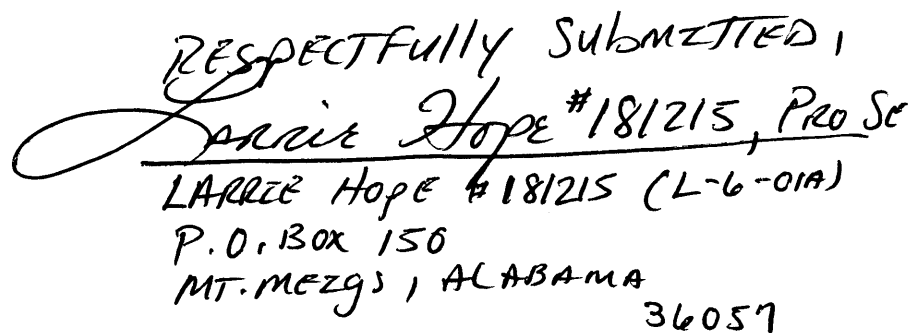 RESPECTFully SubmITTED,
Larrie Hope #181215, Pro Se
LARRIE Hope #181215 (L-6-01A)
P.O. Box 150
MT. MEIgS, ALABAMA
36057